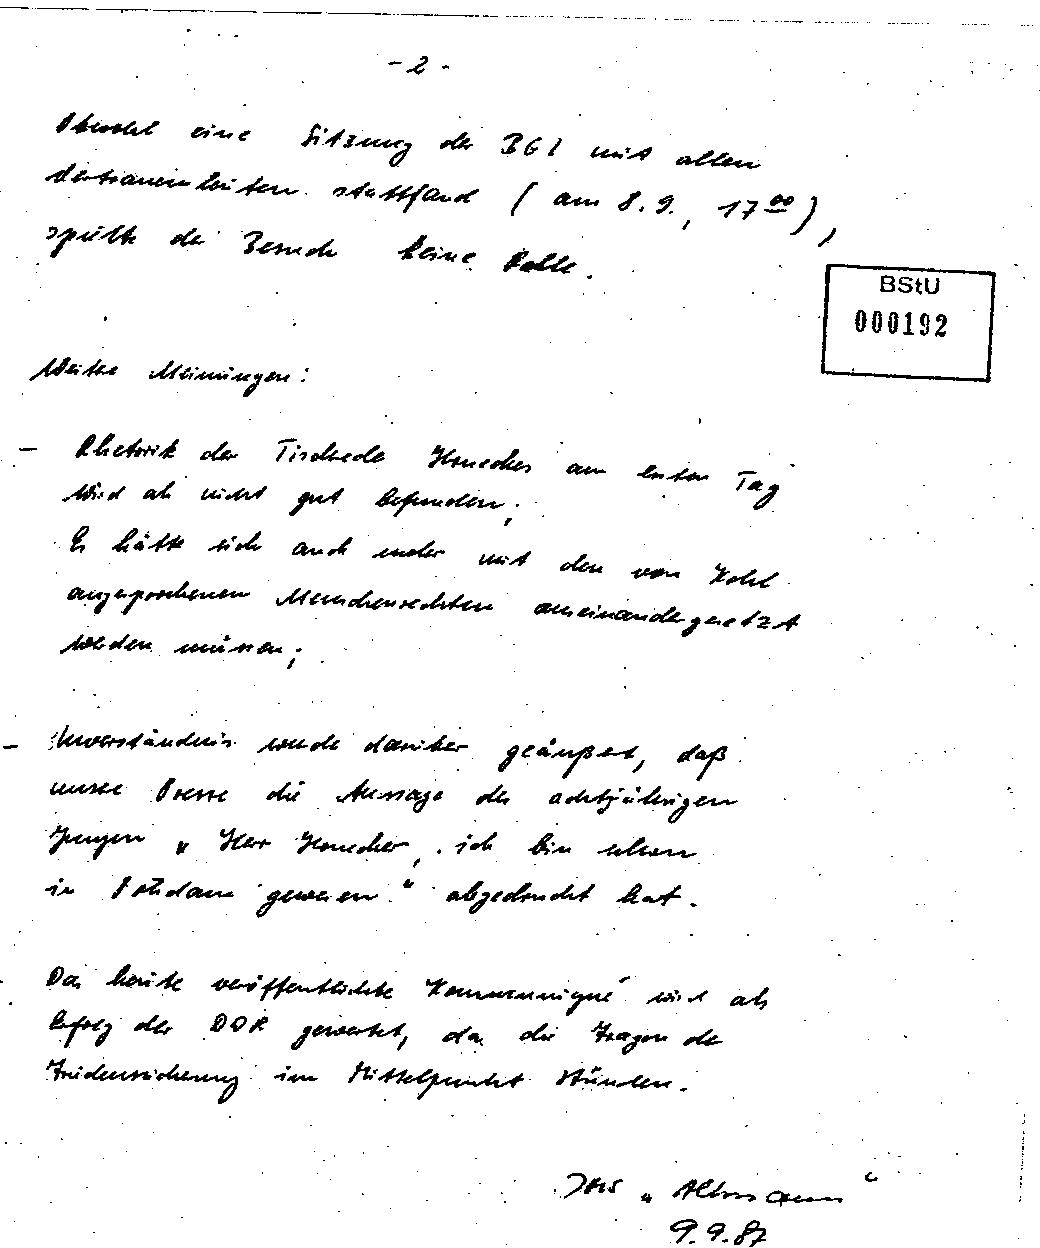 - 2 -
Obwohl eine Sitzung der BGL mit allen
Vertrauensleuten stattfand ( am 8.9., 17⁰⁰ ),
spielte der Besuch keine Rolle.
BStU
000192
Weitere Meinungen:
- Rhetorik der Tischrede Honeckers am ersten Tag
wird als nicht gut befunden;
Es hätte sich auch mehr mit den von Kohl
angesprochenen Menschenrechten auseinandergesetzt
werden müssen;
- Unverständnis wurde darüber geäußert, daß
unsere Presse die Aussage des achtjährigen
Jungen „ Herr Honecker, ich bin schon
in Potsdam gewesen “ abgedruckt hat.
- Das heute veröffentlichte Kommuniqué wird als
Erfolg der DDR gewertet, da die Fragen der
Friedenssicherung im Mittelpunkt stünden.
IMS „ Altmann “
9.9.87